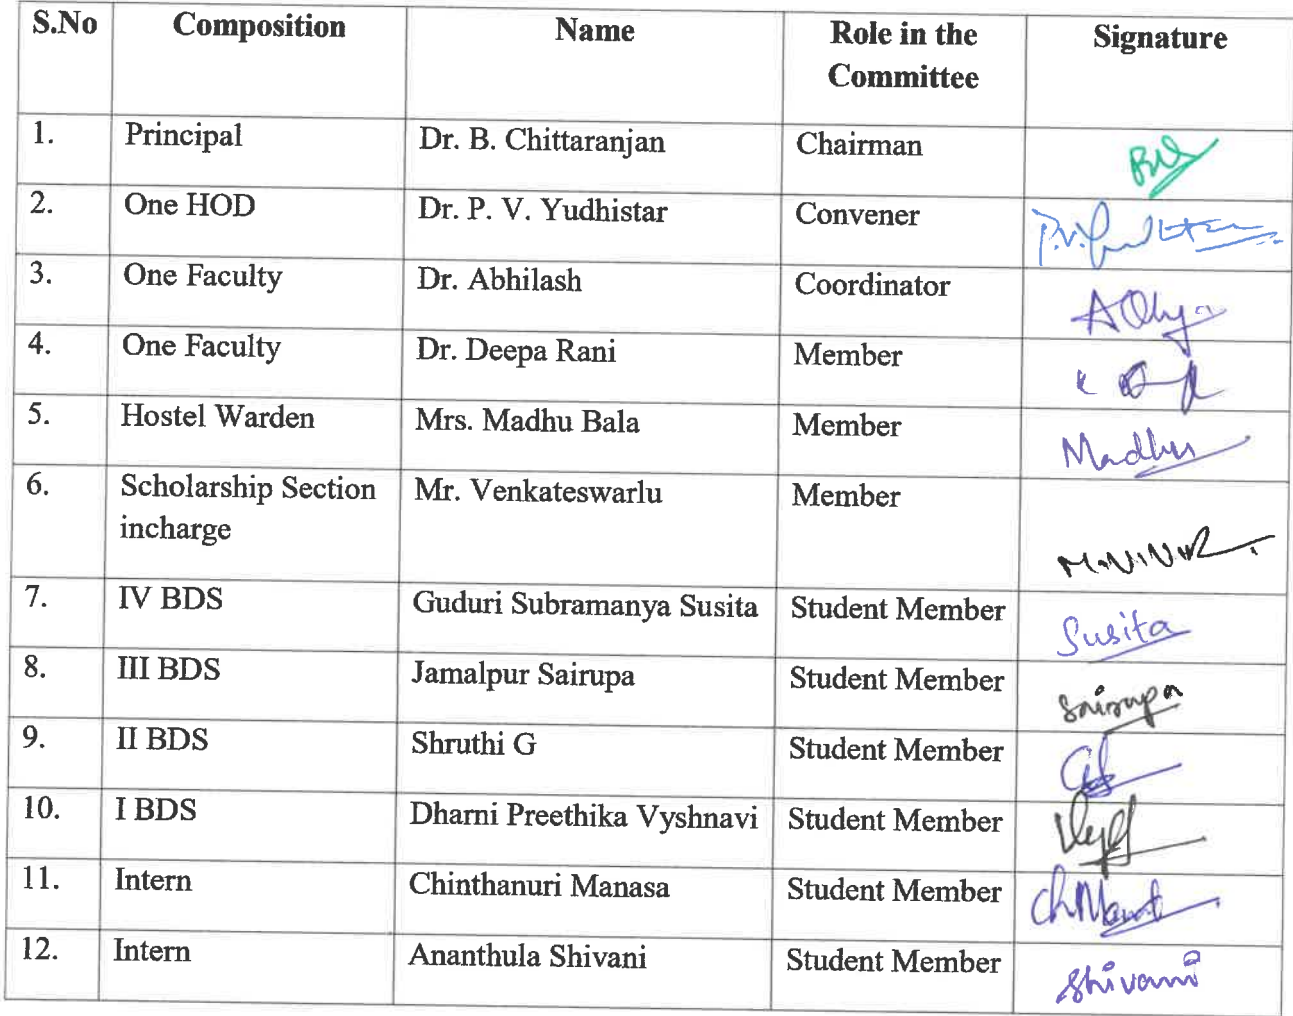 S.No Composition Name Role in the Signature
Committee
1. Principal Dr. B. Chittaranjan Chairman
2. One HOD Dr. P. V. Yudhistar Convener
3. One Faculty Dr. Abhilash Coordinator
4. One Faculty Dr. Deepa Rani Member
5. Hostel Warden Mrs. Madhu Bala Member Madhu
6. Scholarship Section Mr. Venkateswarlu Member
incharge
7. IV BDS Guduri Subramanya Susita Student Member Susita
8. III BDS Jamalpur Sairupa Student Member Sairupa
9. II BDS Shruthi G Student Member
10. I BDS Dharni Preethika Vyshnavi Student Member
11. Intern Chinthanuri Manasa Student Member
12. Intern Ananthula Shivani Student Member Shivani